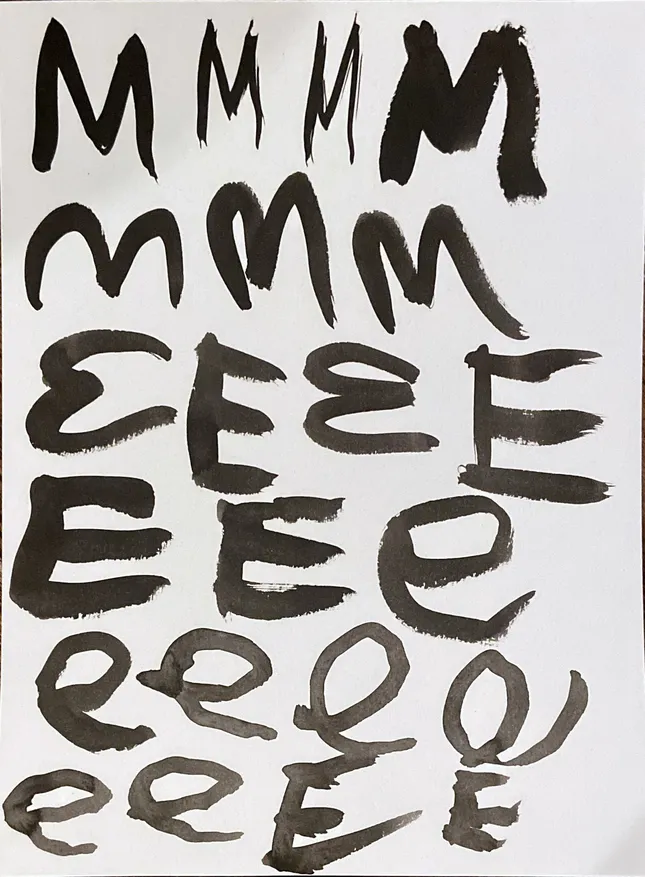 M M M M
M M M
E E E E
E E e
e e e e
e e E E